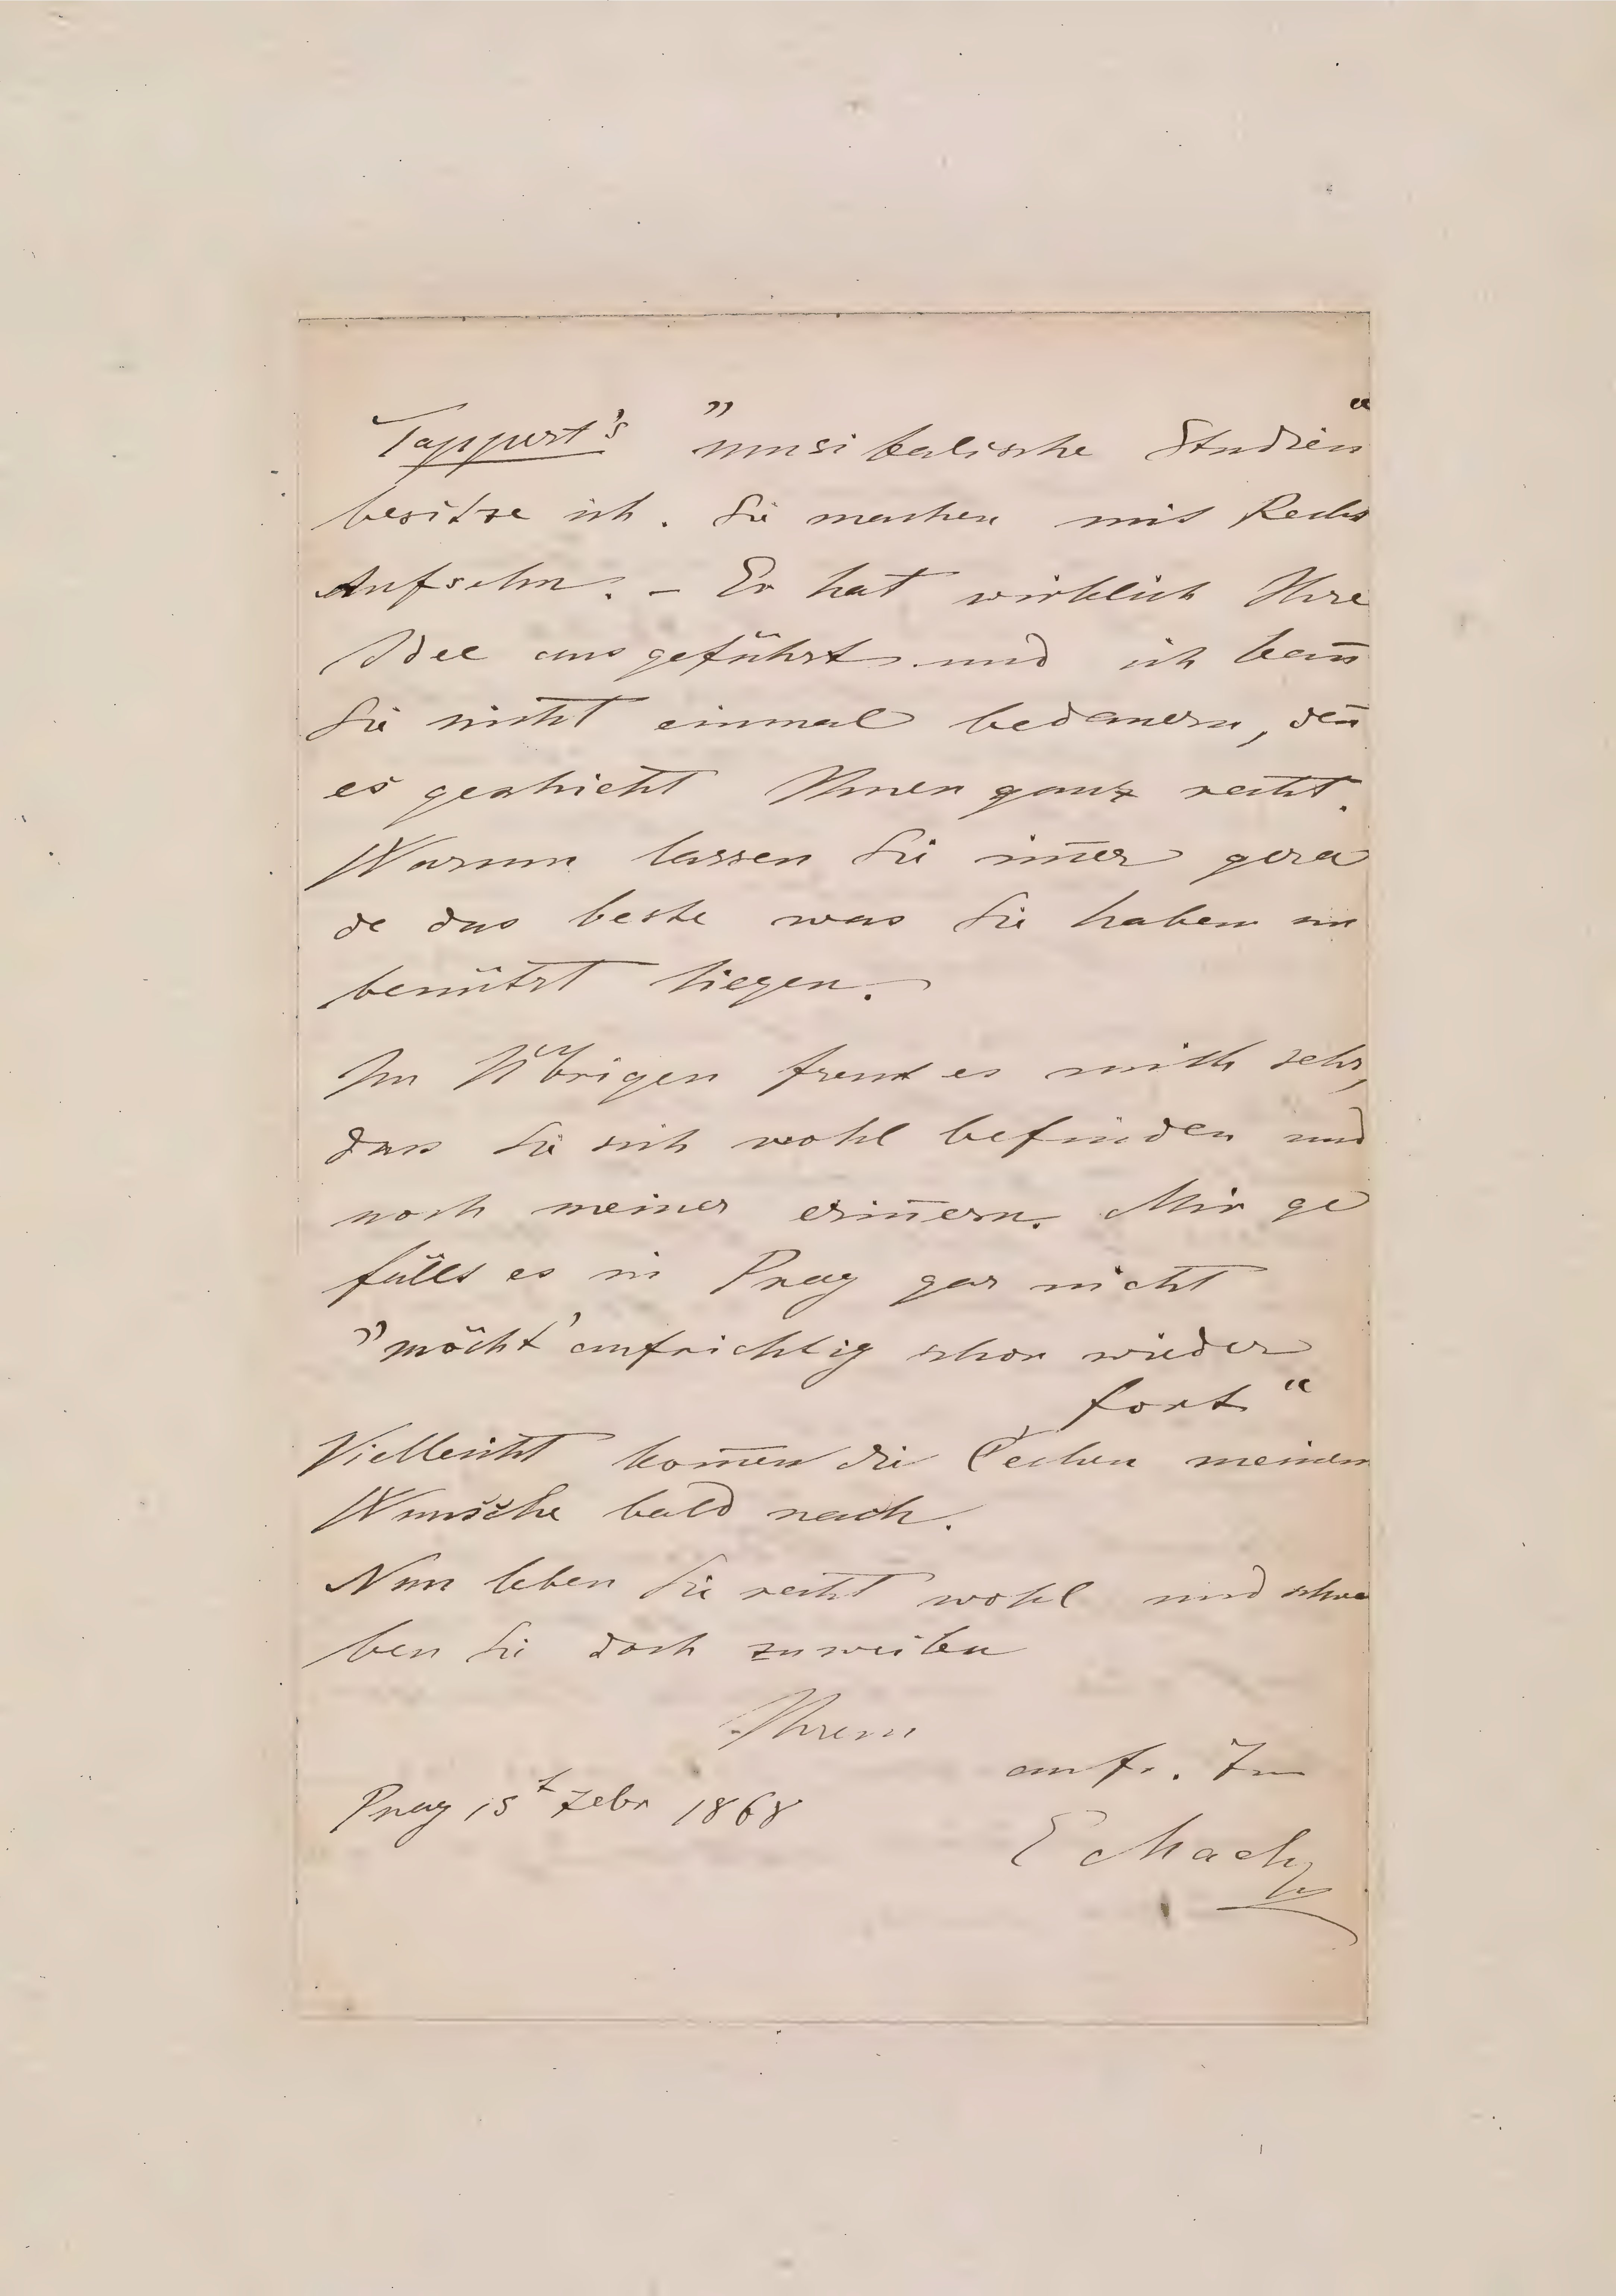 Tappert's „musikalische Studien“
besitze ich. Sie machen mit Recht
Aufsehn. – Er hat wirklich Ihre
Idee ausgeführt und ich kan̄
Sie nicht einmal bedauern, den̄
es geschieht Ihnen ganz recht.
Warum lassen Sie im̄er gera
de das beste was Sie haben un
benützt liegen.
Im Übrigen freut es mich sehr,
dass Sie sich wohl befinden und
noch meiner erin̄ern. Mir ge
fällt es in Prag gar nicht
„möcht' aufrichtig schon wieder
fort“
Vielleicht kom̄en die Čechen meinem
Wunsche bald nach.
Nun leben Sie recht wohl und schrei
ben Sie doch zuweilen
Ihrem
aufr.
Prag 15t Febr 1868
E Mach